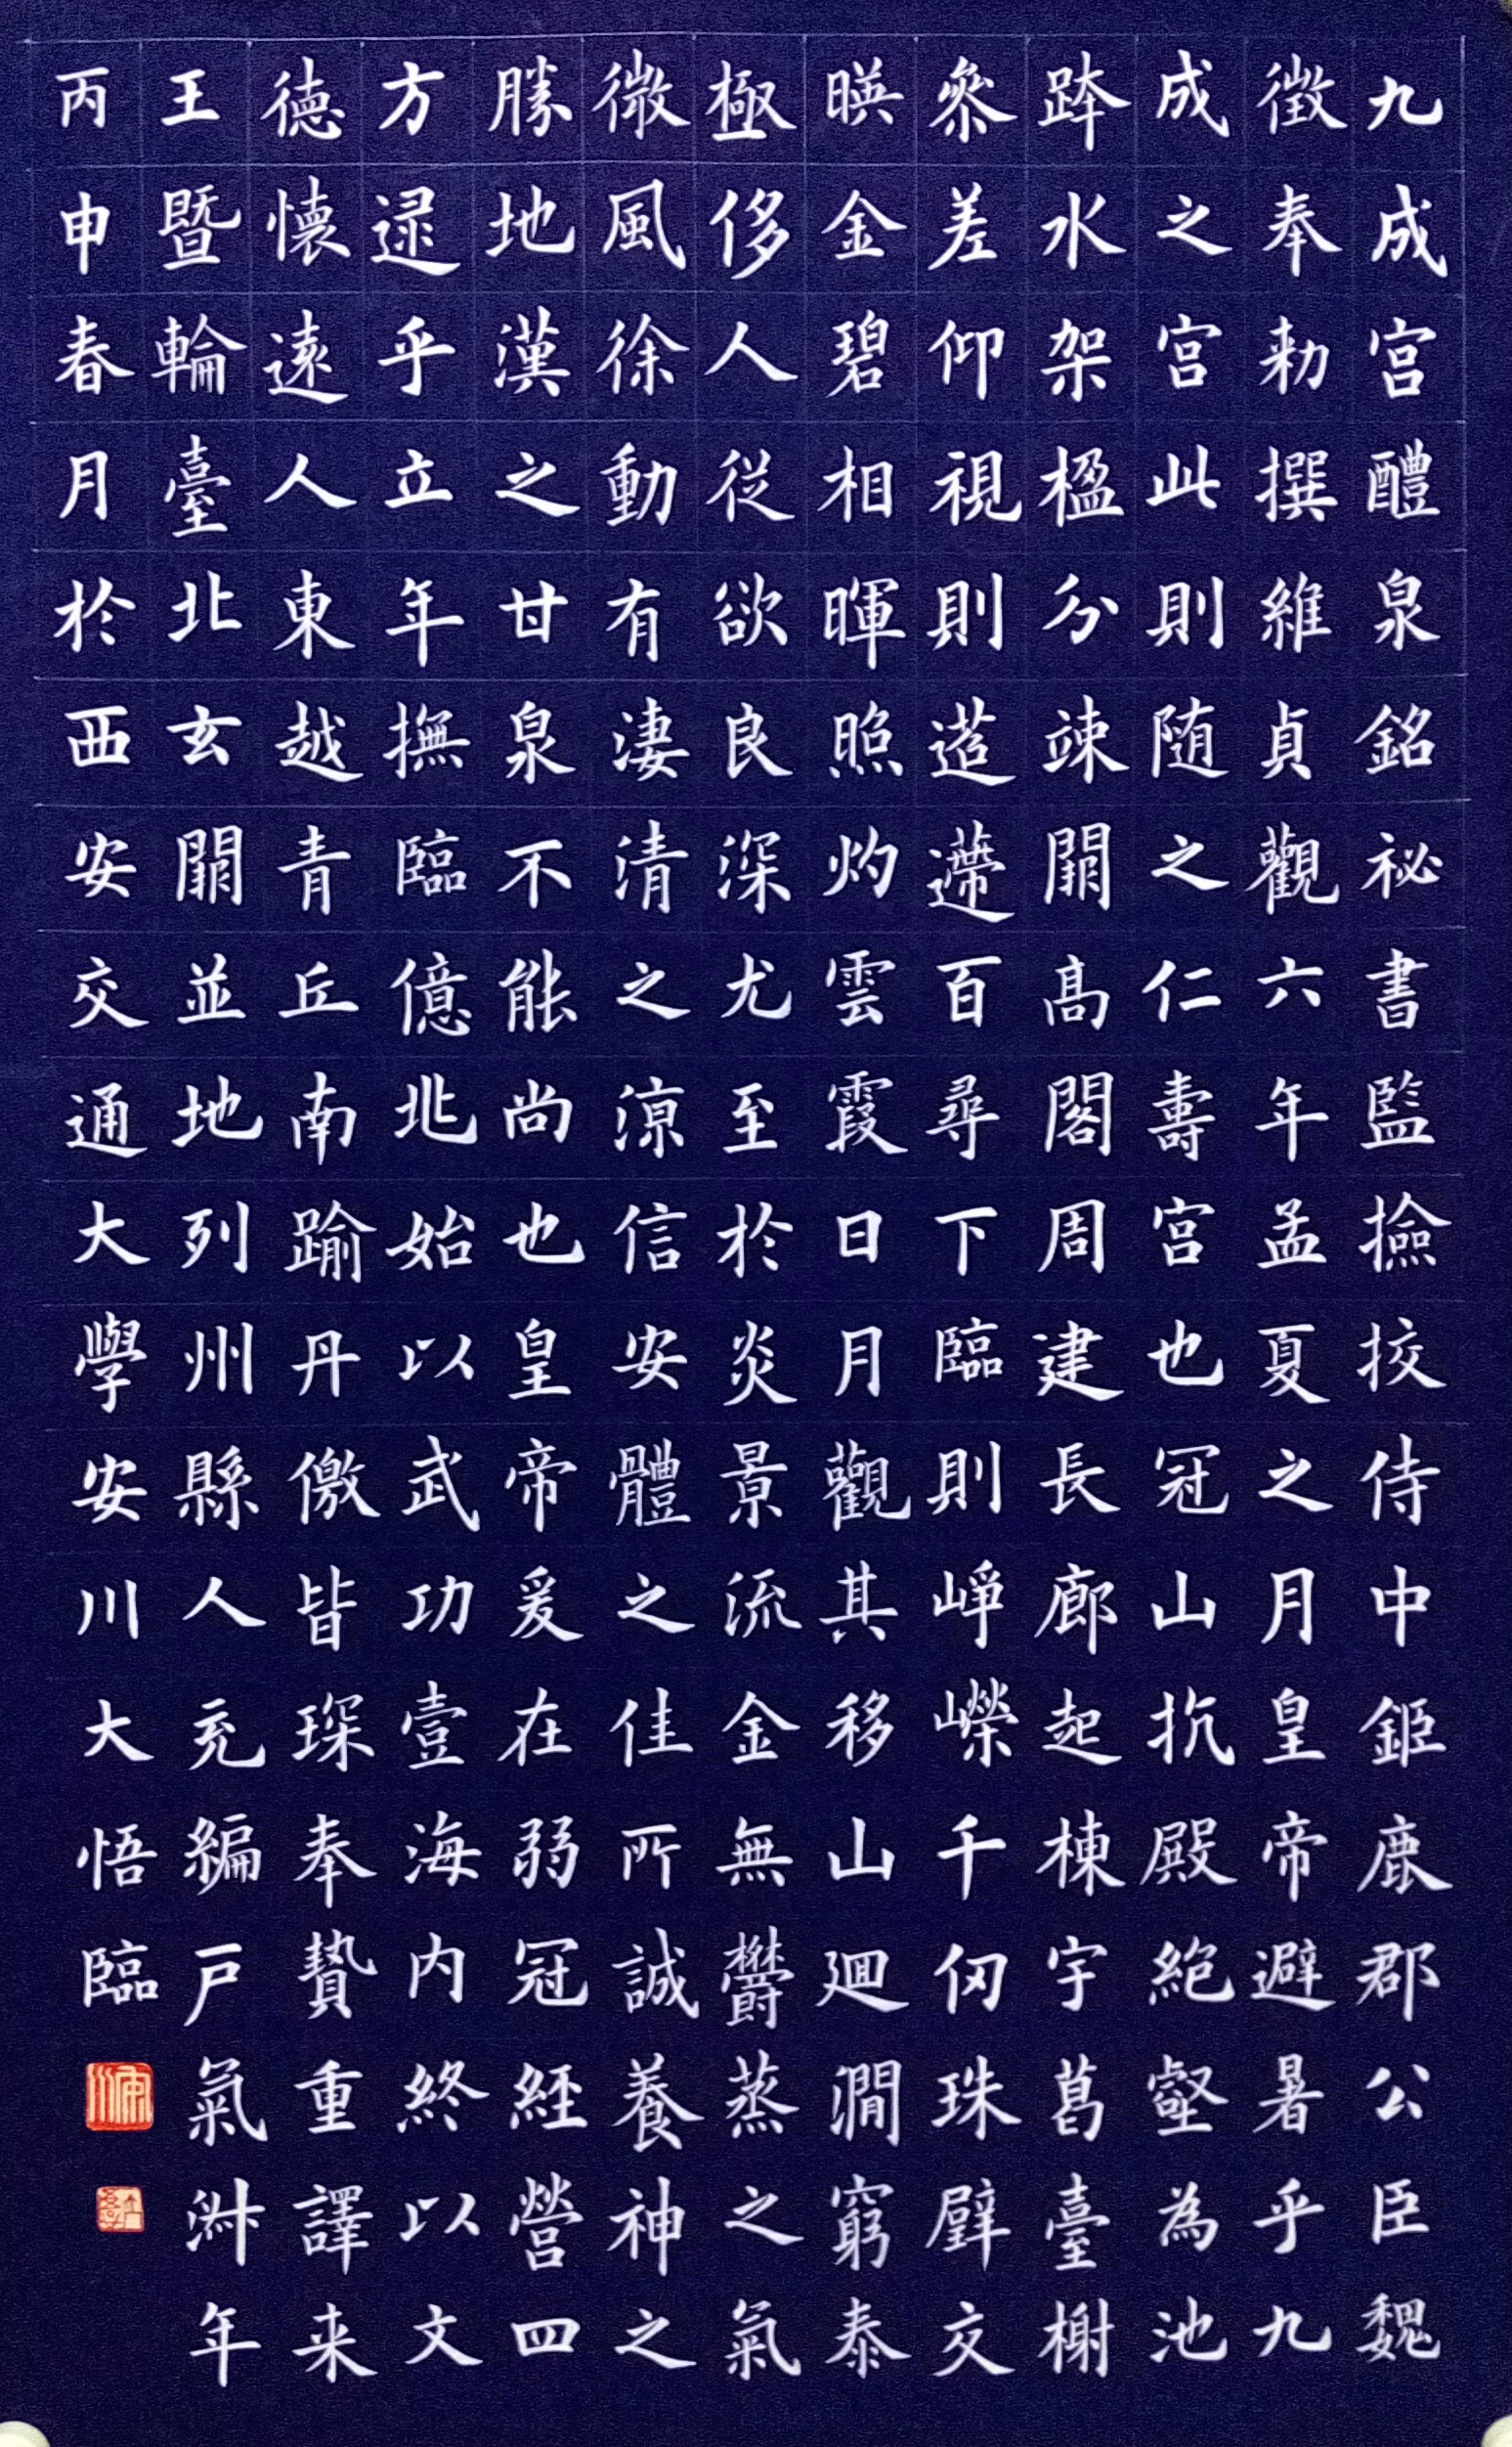 九成宫醴泉銘祕書監撿挍侍中鉅鹿郡公臣魏
徵奉勑撰維貞觀六年孟夏之月皇帝避暑乎九
成之宫此則随之仁壽宫也冠山抗殿絶壑為池
跨水架楹分竦闕高閣周建長廊起棟宇葛臺榭
參差仰視則迢遰百尋下臨則崢嶸千仞珠璧交
暎金碧相暉照灼雲霞日月觀其移山迴澗窮泰
極侈人從欲良深尤至於炎景流金無欝蒸之氣
微風徐動有淒清之涼信安體之佳所誠養神之
勝地漢之甘泉不能尚也皇帝爰在弱冠經營四
方逮乎立年撫臨億兆始以武功壹海内終以文
德懷遠人東越青丘南踰丹儌皆琛奉贄重譯来
王暨輪臺北玄闕並地列州縣人充編戸氣淑年
丙申春月於西安交通大學安川大悟臨